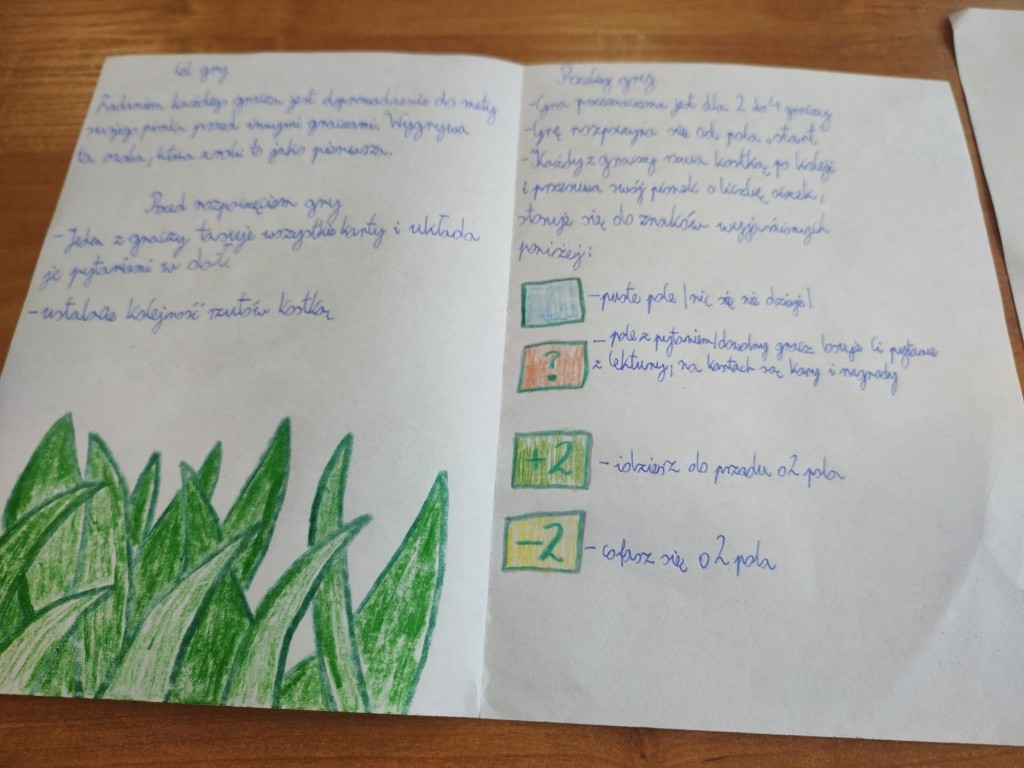 Cel gry
Zadaniem każdego gracza jest doprowadzenie do mety
swojego pionka przed innymi graczami. Wygrywa
ta osoba, która zrobi to jako pierwsza.
Przed rozpoczęciem gry
- Jeden z graczy tasuje wszystkie karty i układa
je pytaniami w dół.
- ustalacie kolejność rzutów kostką
Przebieg gry
- Gra przeznaczona jest dla 2 do 4 graczy
- Grę rozpoczyna się od pola "start"
- Każdy z graczy rzuca kostką po kolei
i przesuwa swój pionek o liczbę oczek,
stosuje się do znaków wyjaśnionych
poniżej:
- puste pole (nic się nie dzieje)
?
- pole z pytaniem/dowolny gracz losuje Ci pytanie
z lektury, na kartach są kary i nagrody
+2
- idziesz do przodu o 2 pola
-2
- cofasz się o 2 pola